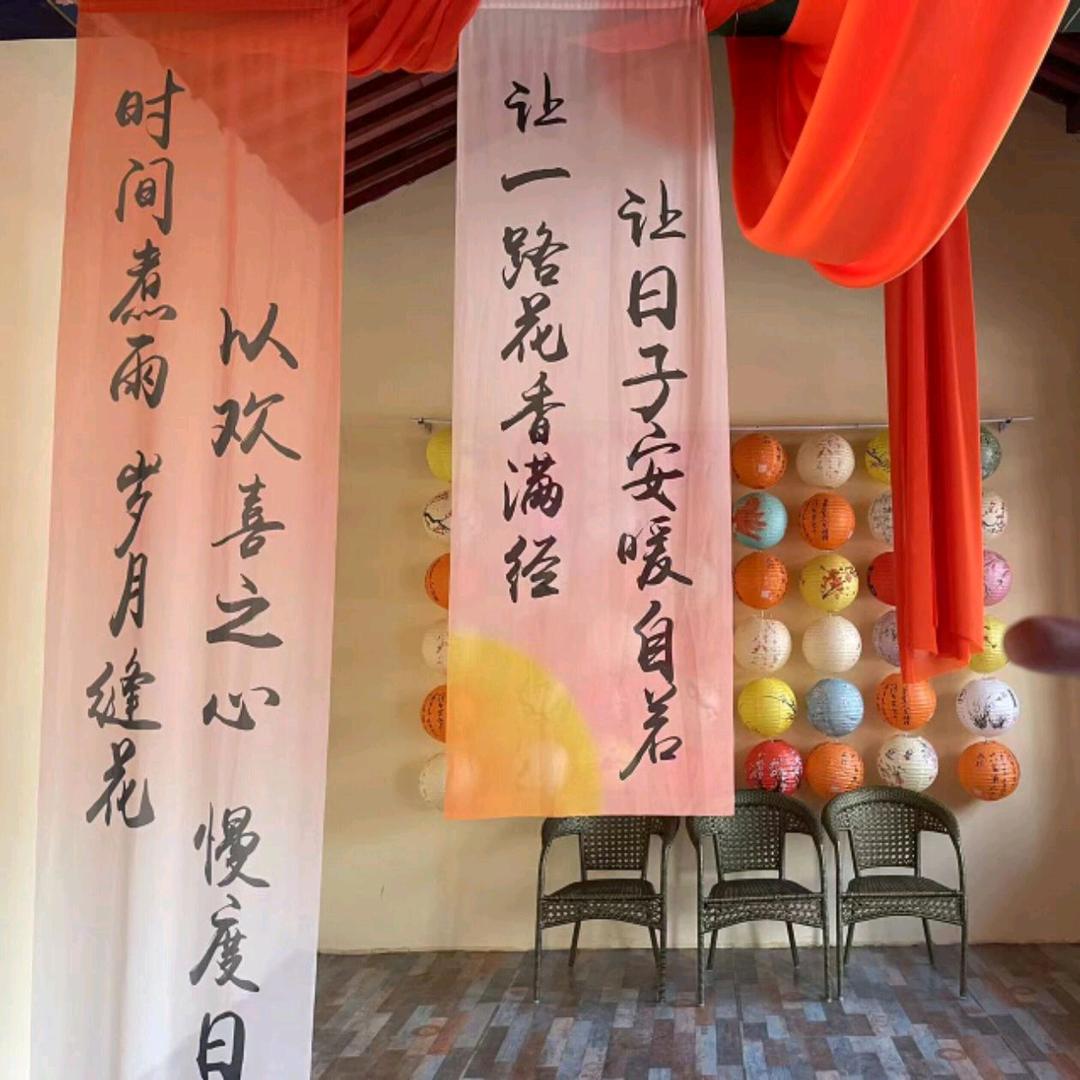 时间煮雨 岁月缝花
以欢喜之心 慢度日
让一路花香满经
让日子安暖自若